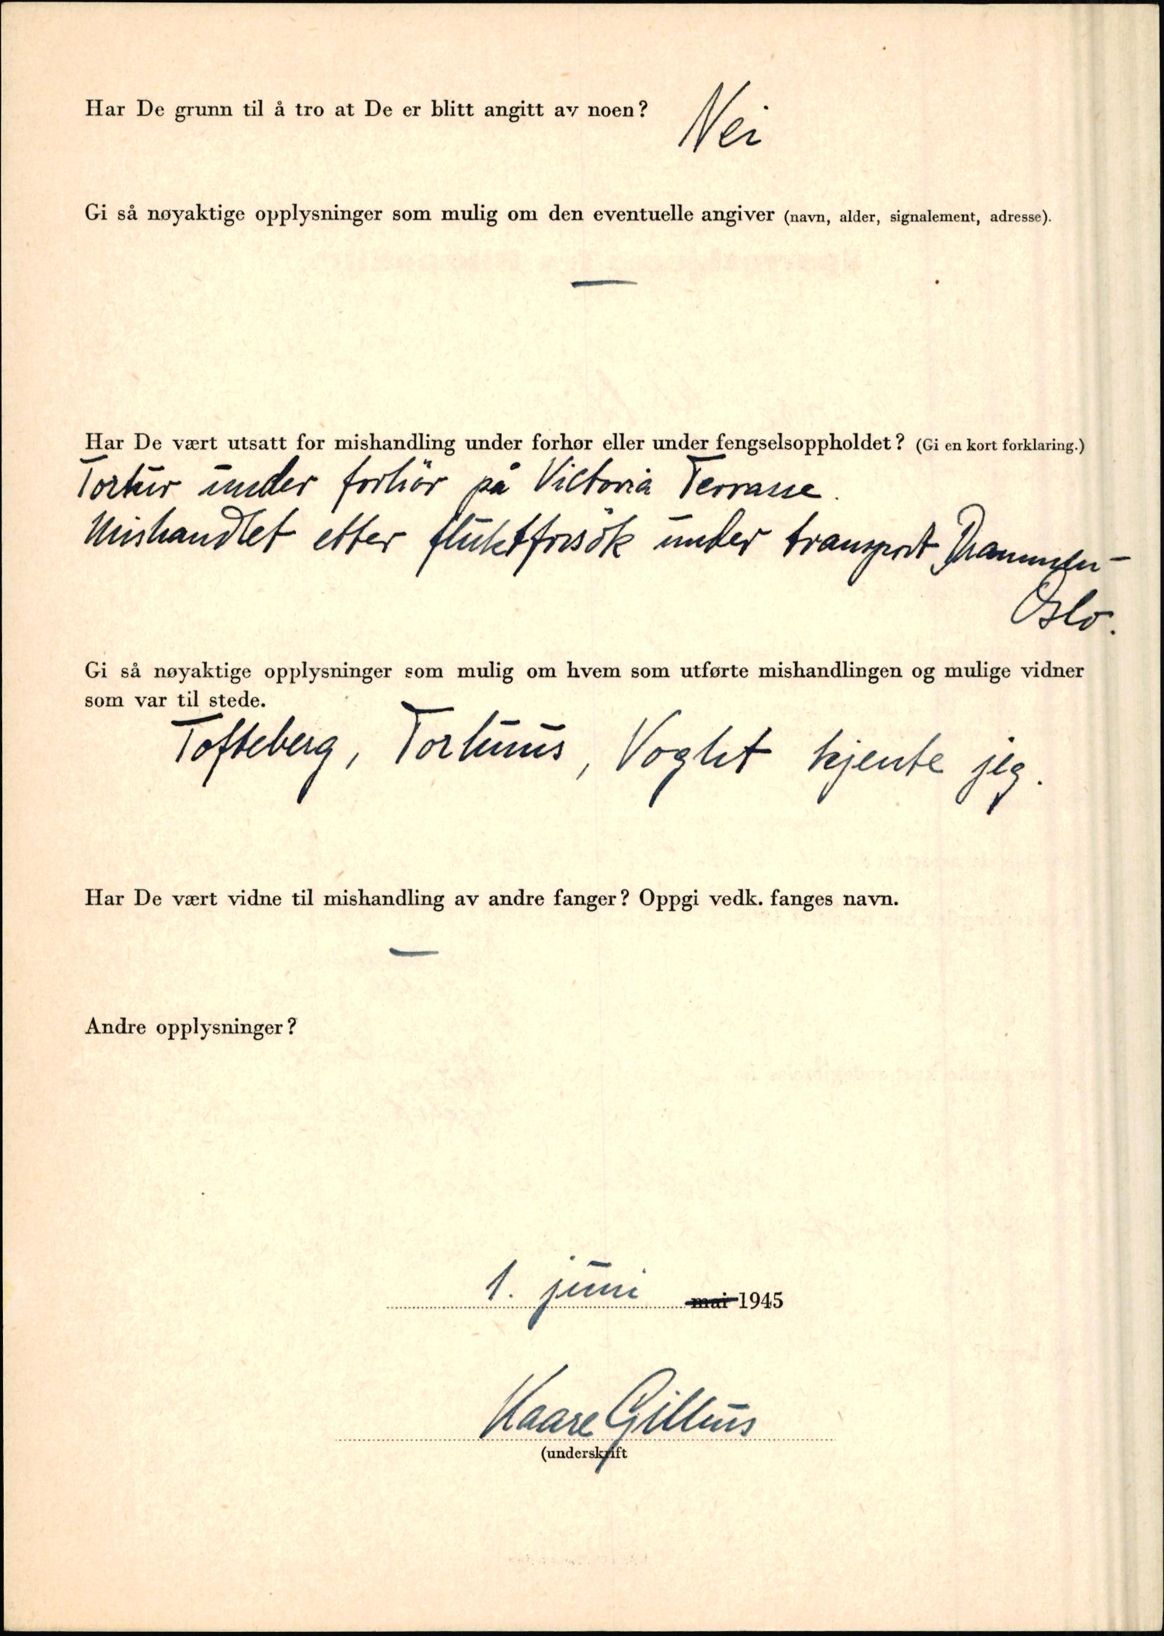 Har De grunn til å tro at De er blitt angitt av noen?
Nei
Gi så nøyaktige opplysninger som mulig om den eventuelle angiver (navn, alder, signalement, adresse).
—
Har De vært utsatt for mishandling under forhør eller under fengselsoppholdet? (Gi en kort forklaring.)
Tortur under forhör på Victoria Terrasse.
Mishandlet etter fluktforsök under transport Drammen-
Oslo.
Gi så nøyaktige opplysninger som mulig om hvem som utførte mishandlingen og mulige vidner
som var til stede.
Tofteberg, , Voght kjente jeg.
Har De vært vidne til mishandling av andre fanger? Oppgi vedk. fanges navn.
—
Andre opplysninger?
1. juni mai 1945
Kaare Gillhus
(underskrift